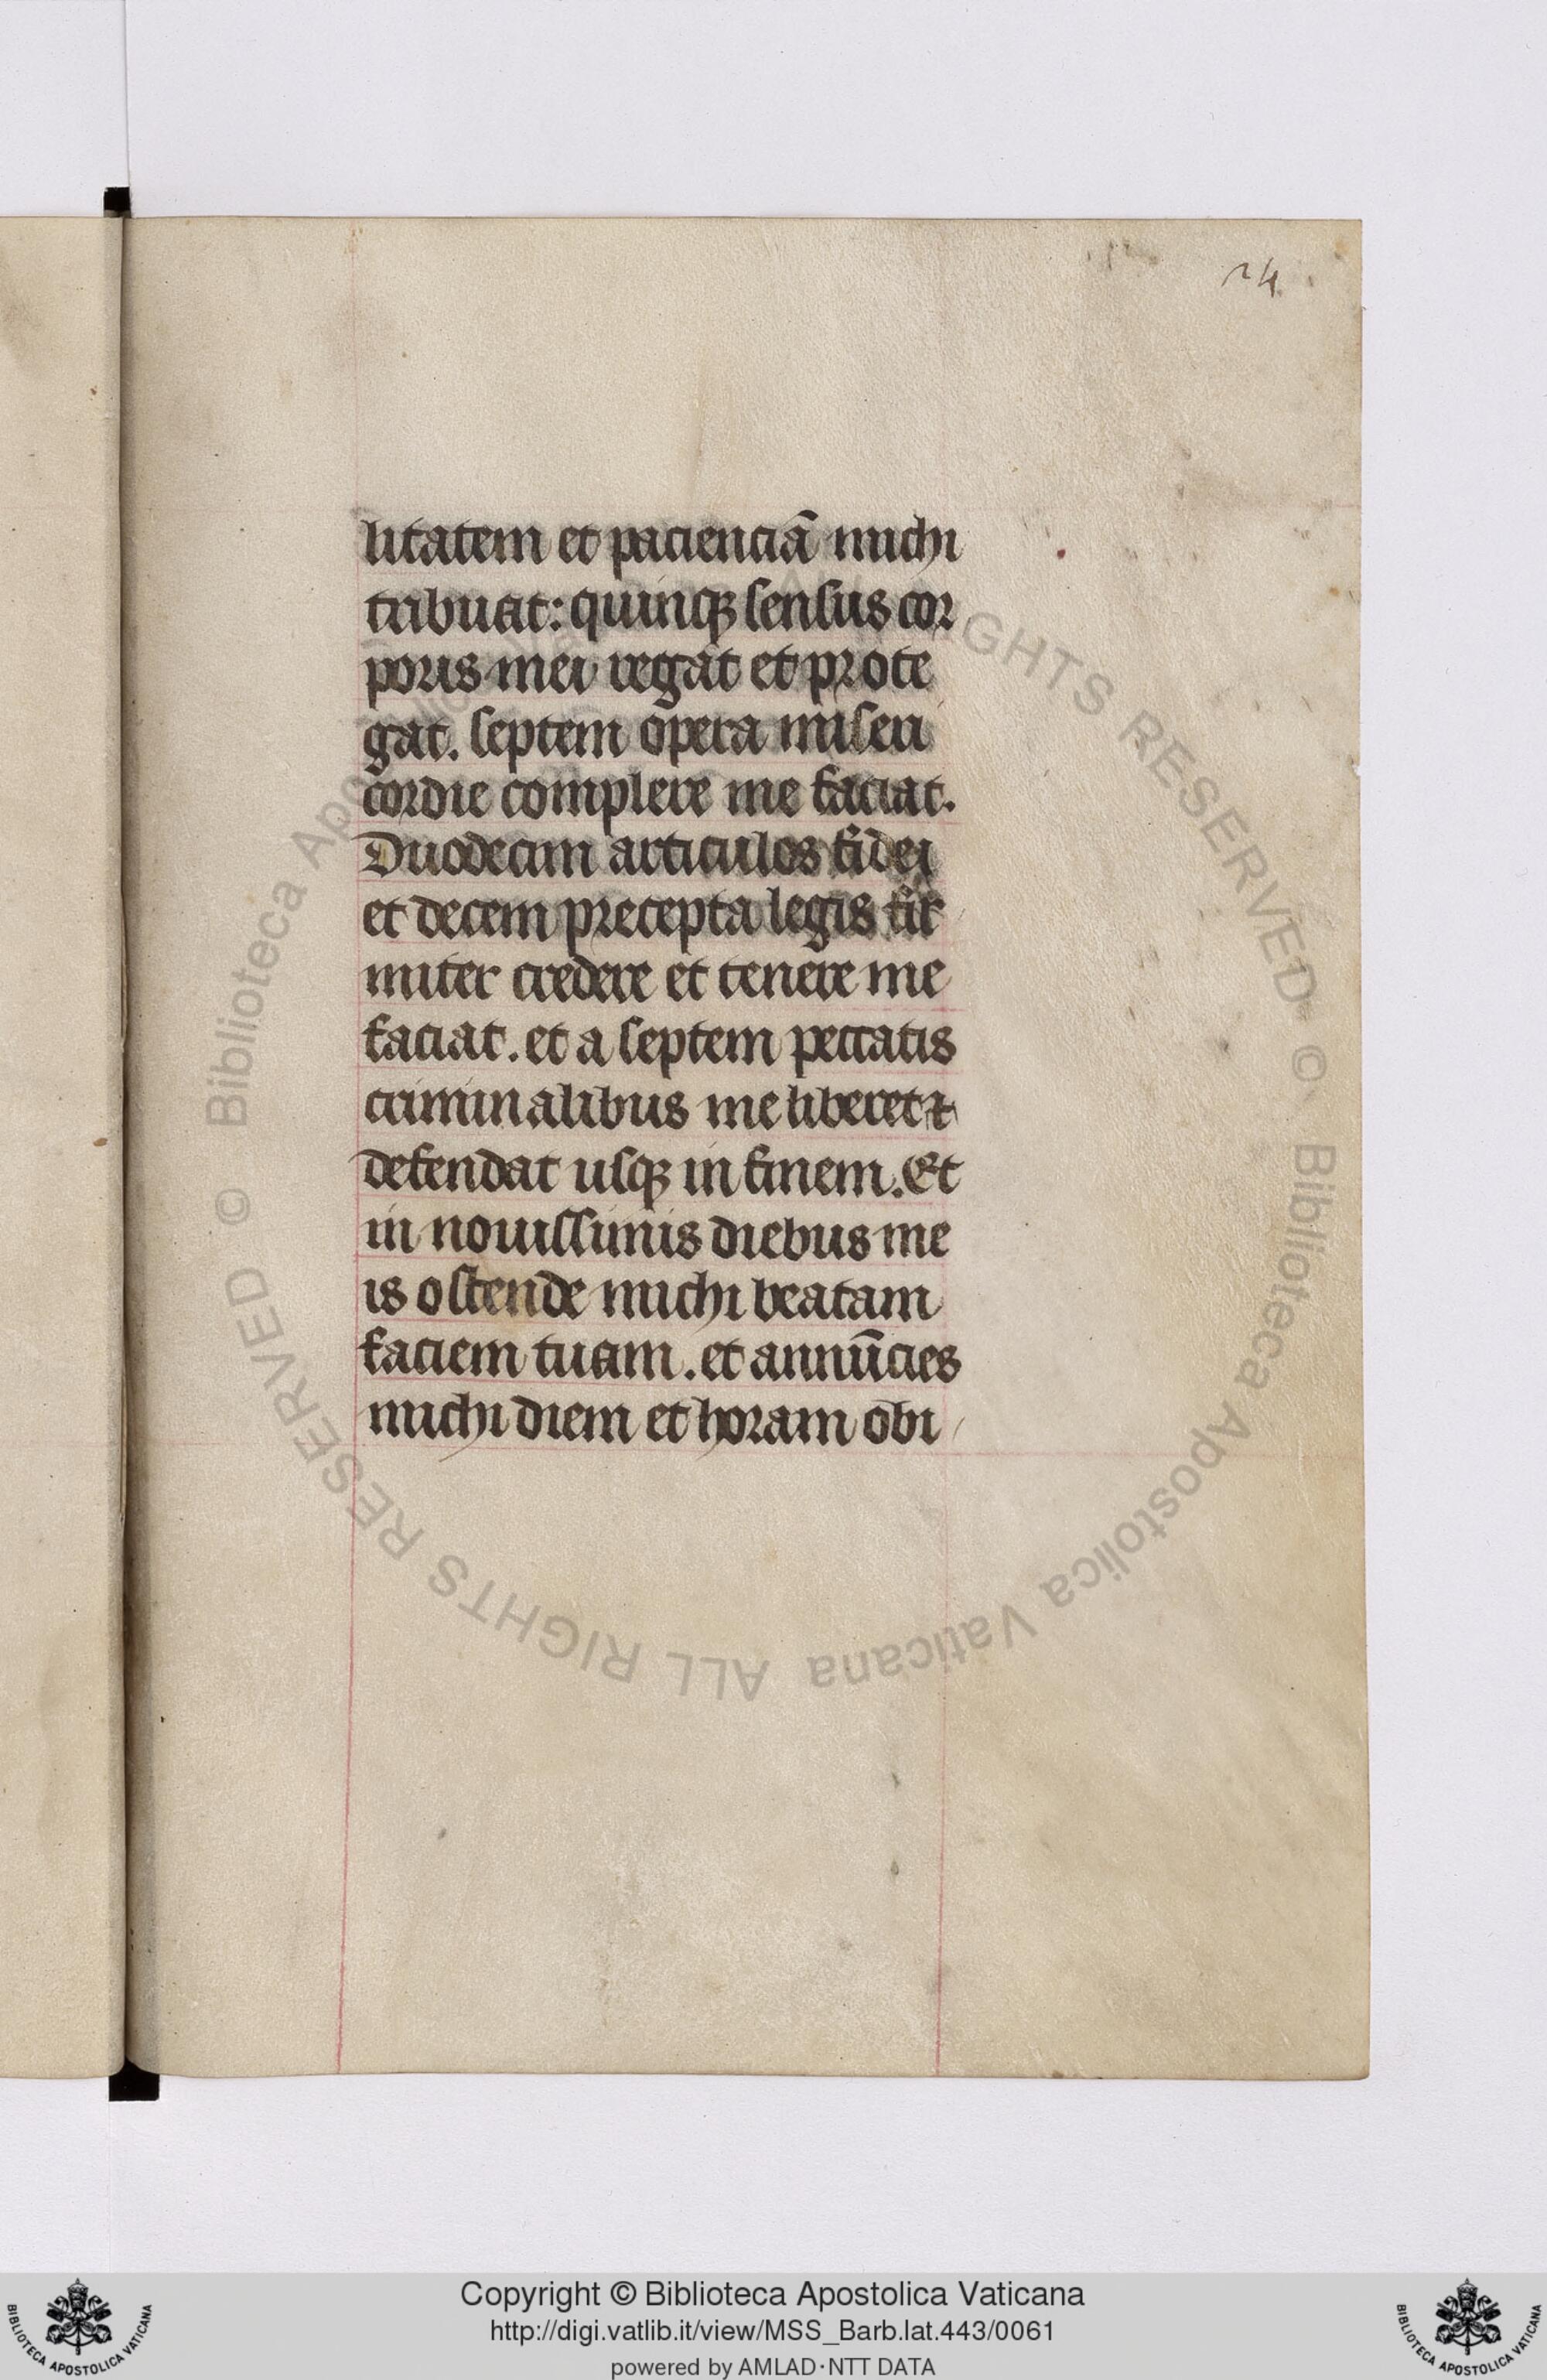 24
litatem et pacienciā michi
tribuat: quinqꝫ sensus cor
poris mei regat et prote
gat. septem opera miseri
cordie complere me faciat.
Duodecim articulos fidei
et decem precepta legis fir
miter credere et tenere me
faciat. et a septem peccatis
criminalibus me liberet ⁊
defendat usqꝫ in finem. Et
in nouissimis diebus me
is ostende michi beatam
faciem tuam. et annūcies
michi diem et horam obi
© Biblioteca Apostolica Vaticana ALL RIGHTS RESERVED © Biblioteca Apostolica Vaticana ALL RIGHTS RESERVED
Copyright © Biblioteca Apostolica Vaticana
http://digi.vatlib.it/view/MSS_Barb.lat.443/0061
powered by AMLAD·NTT DATA
BIBLIOTECA APOSTOLICA VATICANA
BIBLIOTECA APOSTOLICA VATICANA